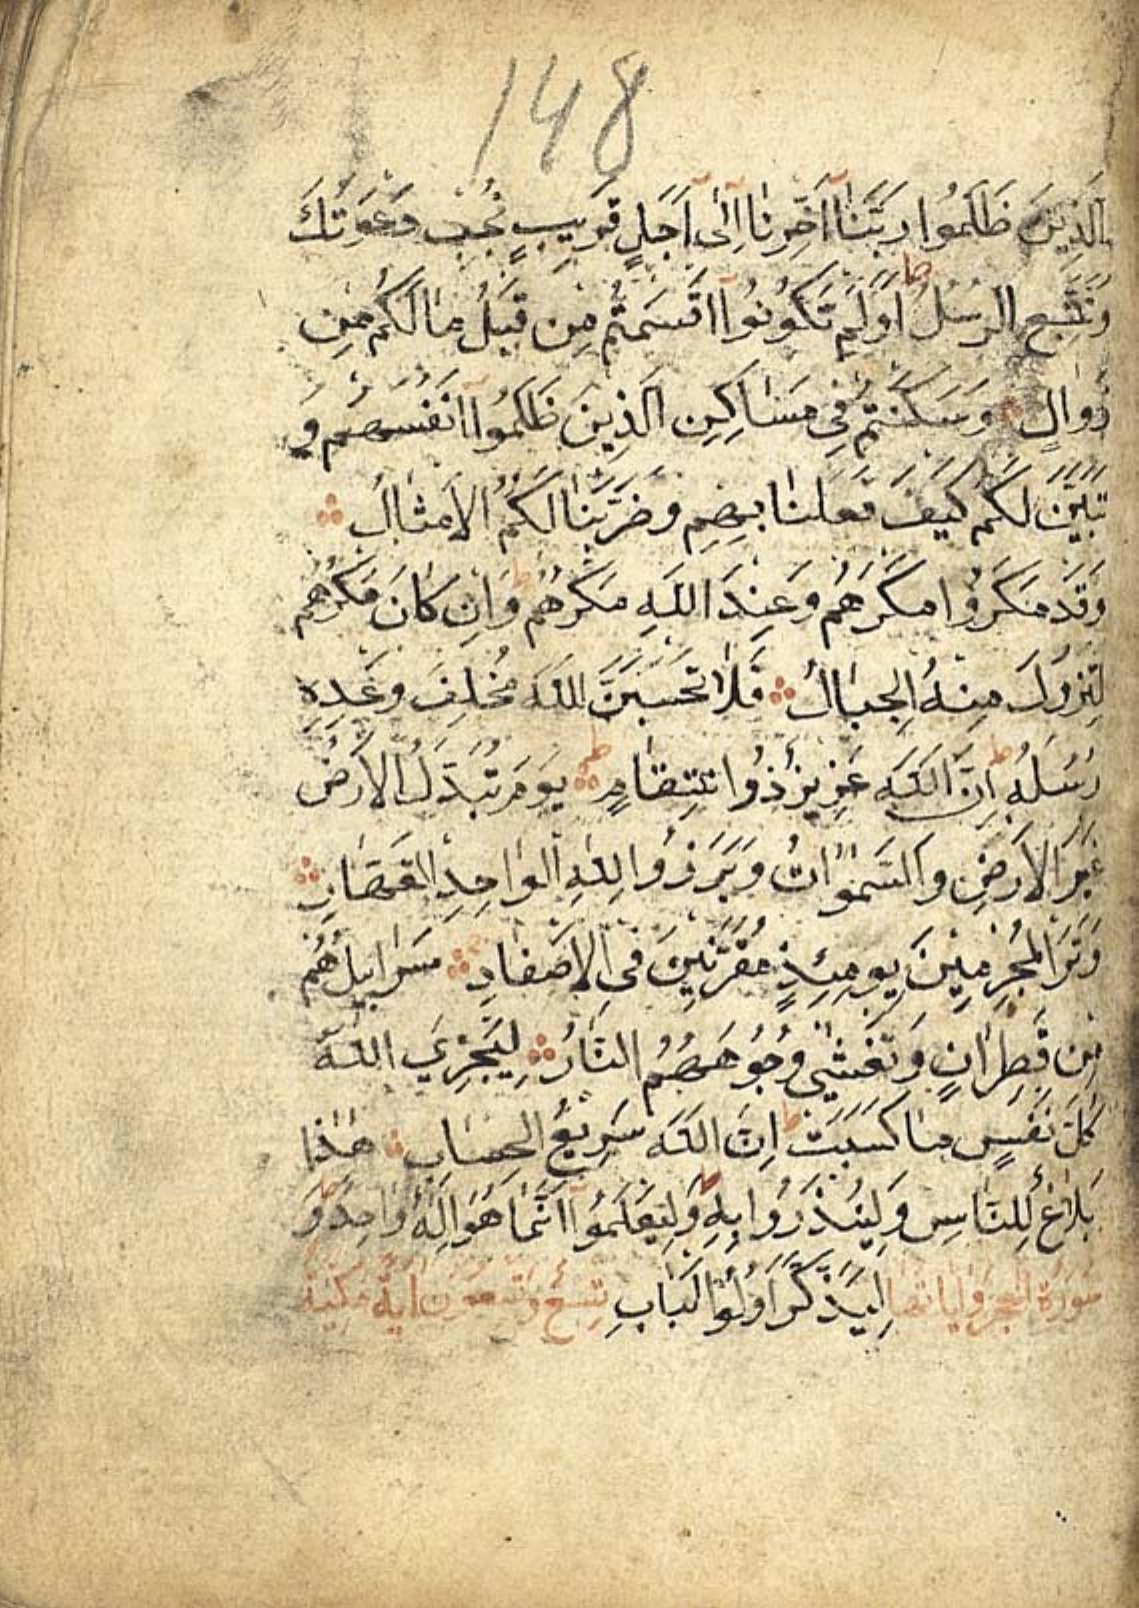 148
الَّذِينَ ظَلَمُوا رَبَّنَٓا اَخِّرْنَٓا اِلٰٓى اَجَلٍ قَرِيبٍ نُجِبْ دَعْوَتَكَ
وَنَتَّبِعِ الرُّسُلَ ط اَوَلَمْ تَكُونُٓوا اَقْسَمْتُمْ مِنْ قَبْلُ مَا لَكُمْ مِنْ
زَوَالٍ وَسَكَنْتُمْ فِى مَسَاكِنِ الَّذِينَ ظَلَمُٓوا اَنْفُسَهُمْ وَ
تَبَيَّنَ لَكُمْ كَيْفَ فَعَلْنَا بِهِمْ وَضَرَبْنَا لَكُمُ الْاَمْثَالَ
وَقَدْ مَكَرُوا مَكْرَهُمْ وَعِنْدَ اللّٰهِ مَكْرُهُمْ ط وَاِنْ كَانَ مَكْرُهُمْ
لِتَزُولَ مِنْهُ الْجِبَالُ فَلَا تَحْسَبَنَّ اللّٰهَ مُخْلِفَ وَعْدِهِ
رُسُلَهُ ط اِنَّ اللّٰهَ عَزِيزٌ ذُوانْتِقَامٍ ط يَوْمَ تُبَدَّلُ الْاَرْضُ
غَيْرَ الْاَرْضِ وَالسَّمٰوَاتُ وَبَرَزُوا لِلّٰهِ الْوَاحِدِ الْقَهَّارِ
وَتَرَ الْمُجْرِمِينَ يَوْمَئِذٍ مُقَرَّنِينَ فِى الْاَصْفَادِ سَرَابِيلُهُمْ
مِنْ قَطِرَانٍ وَتَغْشٰى وُجُوهَهُمُ النَّارُ لِيَجْزِيَ اللّٰهُ
كُلَّ نَفْسٍ مَا كَسَبَتْ ط اِنَّ اللّٰهَ سَرِيعُ الْحِسَابِ هٰذَا
بَلَاغٌ لِلنَّاسِ وَلِيُنْذَرُوا بِهِ وَلِيَعْلَمُٓوا اَنَّمَا هُوَ اِلٰهٌ وَاحِدٌ وَ
سُورَةُ الْحِجْرِ وَاٰيَاتُهَا لِيَذَّكَّرَ اُولُوا الْاَلْبَابِ تِسْعٌ وَتِسْعُونَ اٰيَةً مَكِّيَّةٌ